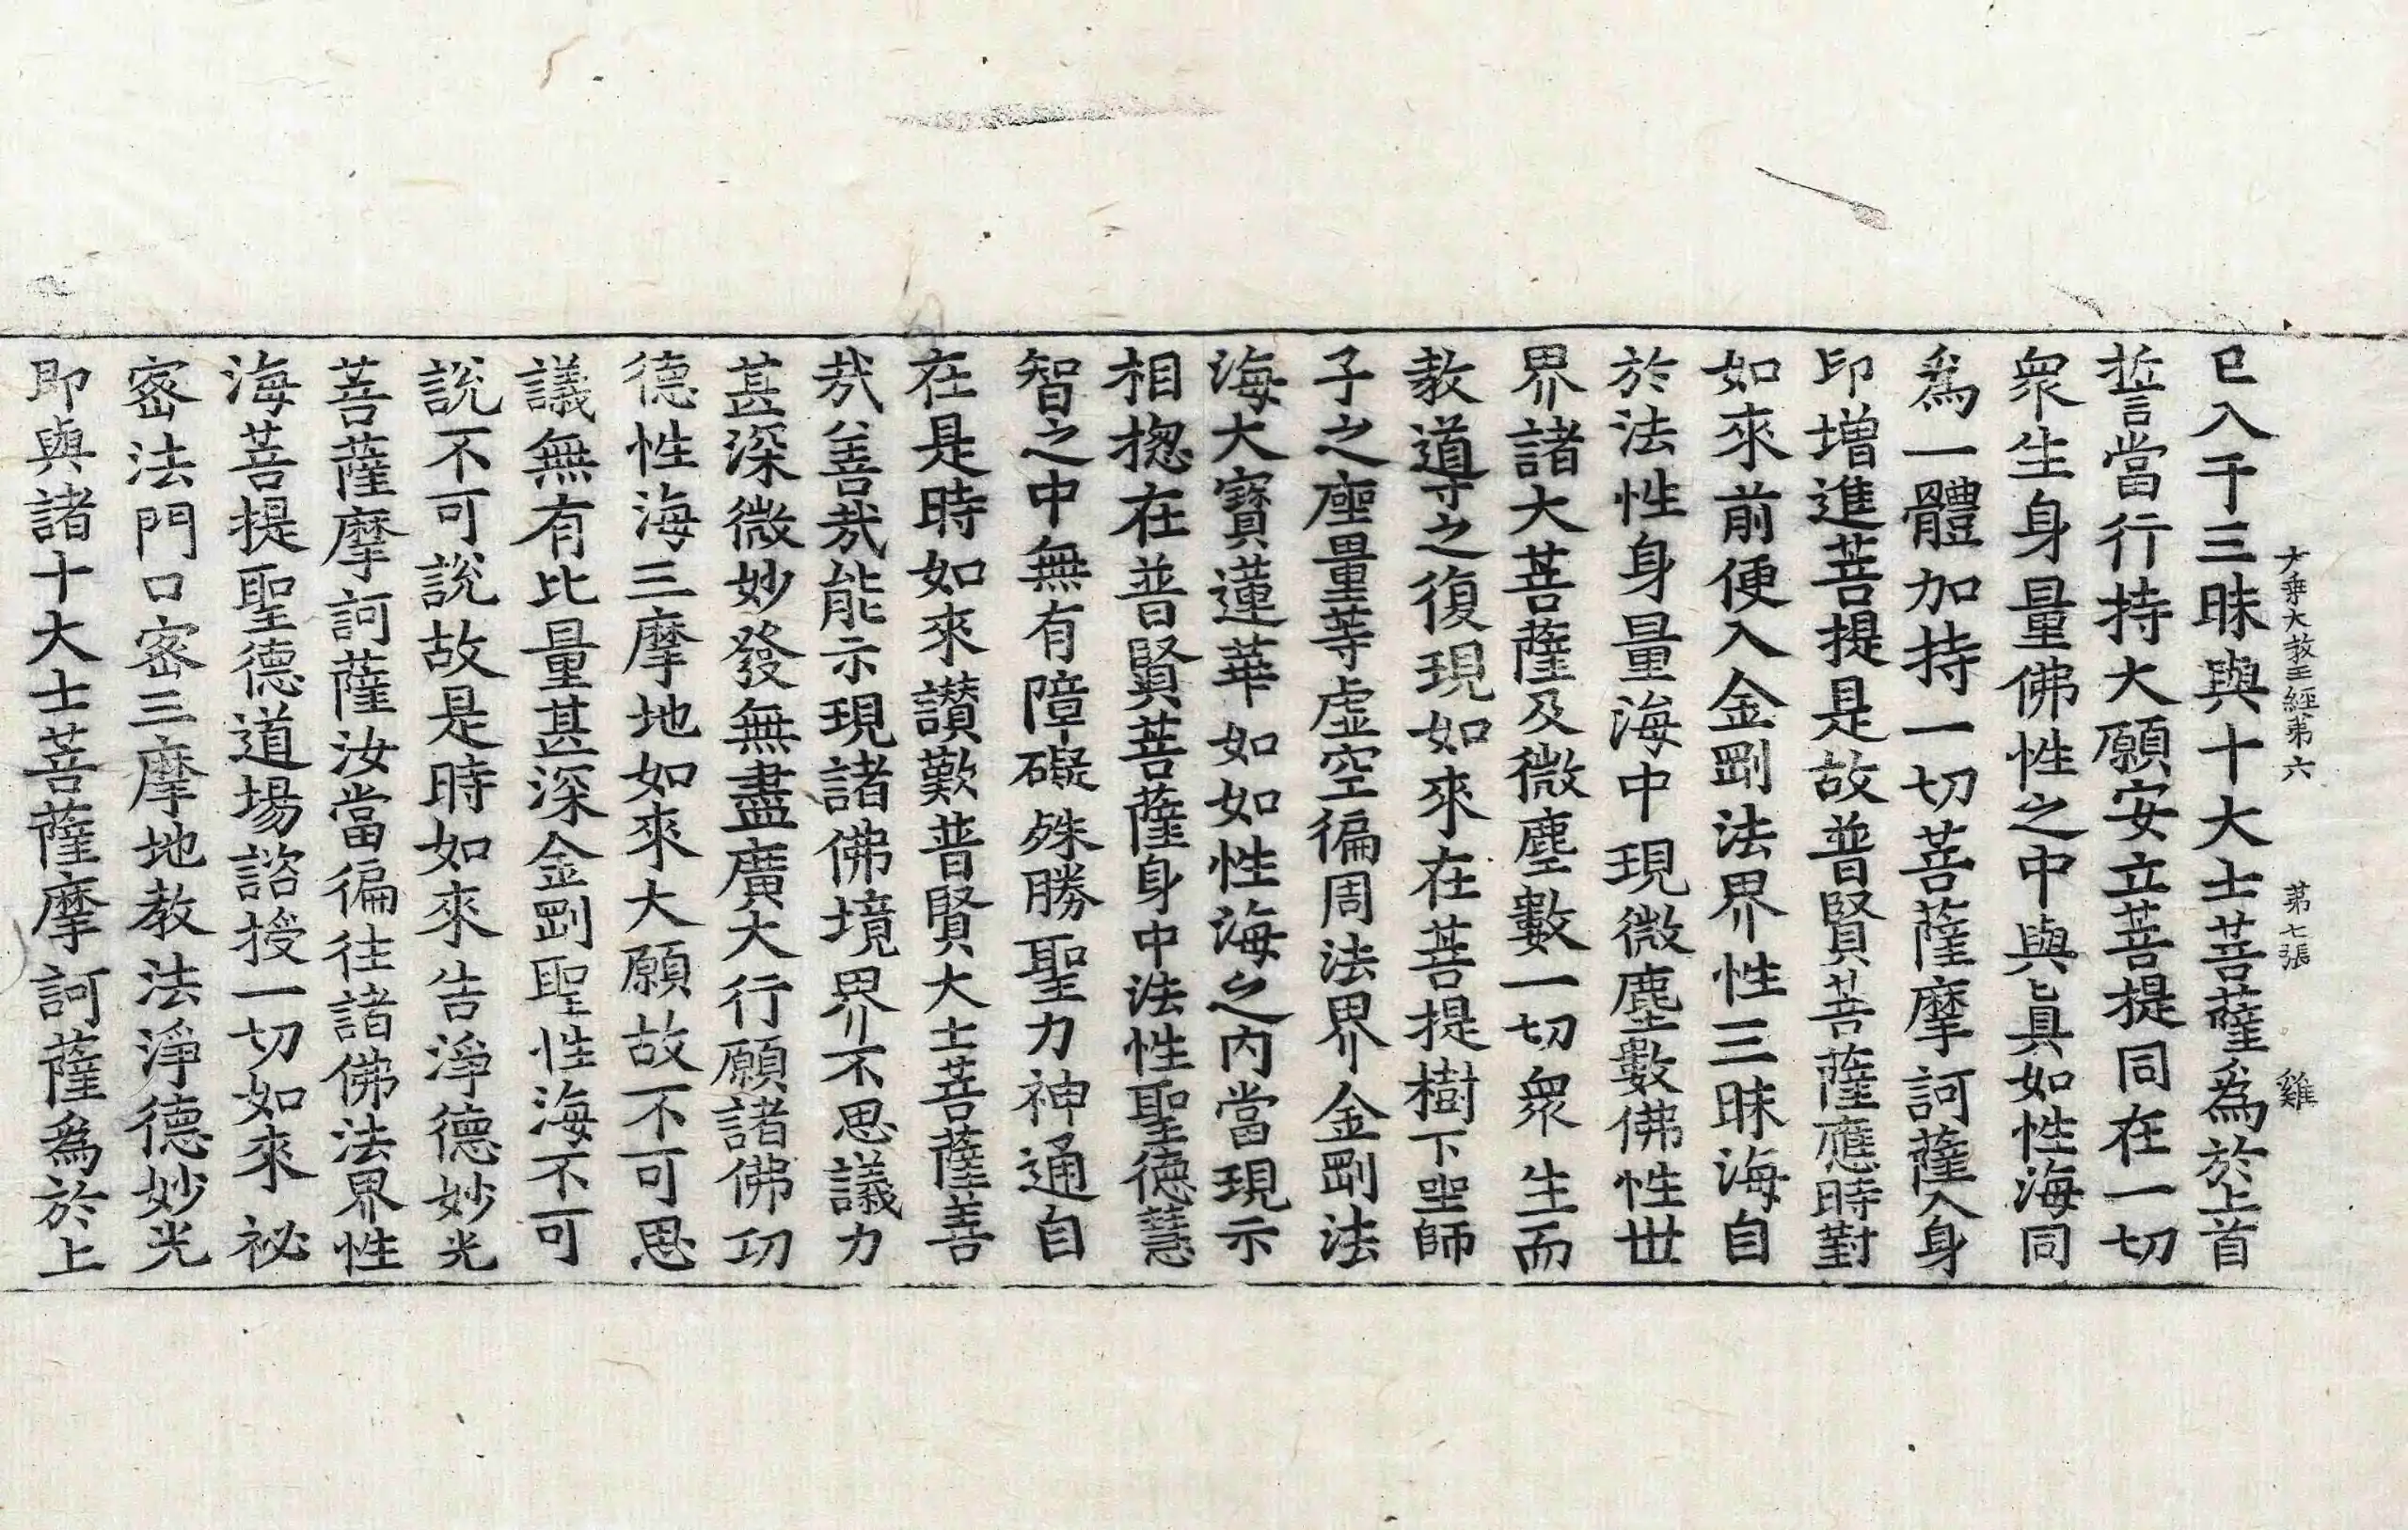 大乗大教王經第六 第七張 雞
已入于三昧與十大士菩薩爲於上首
誓當行持大願安立菩提同在一切
衆生身量佛性之中與眞如性海同
爲一體加持一切菩薩摩訶薩入身
印增進菩提是故普賢菩薩應時對
如來前便入金剛法界性三昧海自
於法性身量海中現微塵數佛性世
界諸大菩薩及微塵數一切衆生而
教導之復現如來在菩提樹下坐師
子之座量等虛空徧周法界金剛法
海大寶蓮華如如性海之內當現示
相揔在普賢菩薩身中法性聖德慧
智之中無有障礙殊勝聖力神通自
在是時如來讃歎普賢大士菩薩善
哉善哉能示現諸佛境界不思議力
甚深微妙發無盡廣大行願諸佛功
德性海三摩地如來大願故不可思
議無有比量甚深金剛聖性海不可
說不可說故是時如來告淨德妙光
菩薩摩訶薩汝當徧往諸佛法界性
海菩提聖德道場諮授一切如來祕
密法門口密三摩地教法淨德妙光
即與諸十大士菩薩摩訶薩爲於上